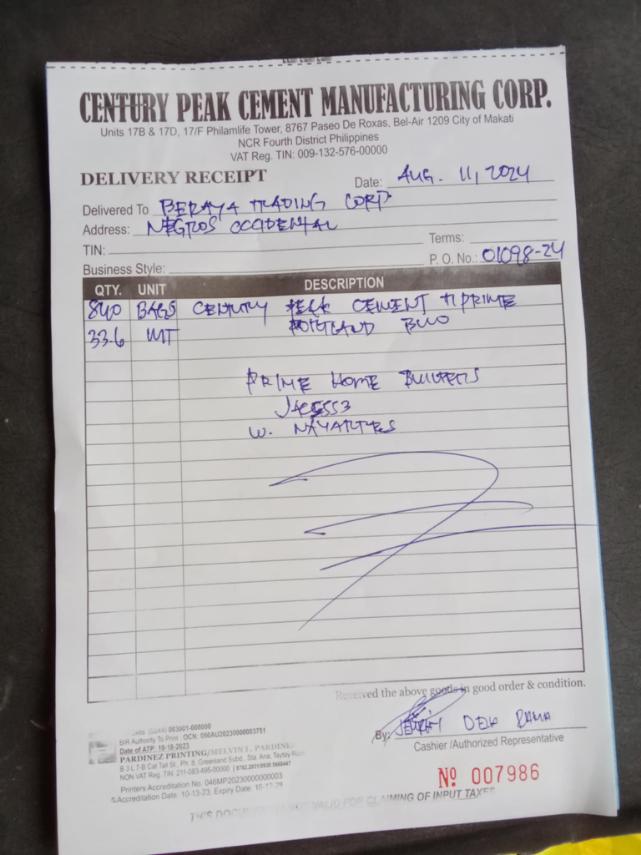 CENTURY PEAK CEMENT MANUFACTURING CORP.
Units 17B & 17D, 17/F Philamlife Tower, 8767 Paseo De Roxas, Bel-Air 1209 City of Makati
NCR Fourth District Philippines
VAT Reg. TIN: 009-132-576-00000
DELIVERY RECEIPT
Date: AUG. 11, 2024
Delivered To BERAYA TRADING CORP
Address: NEGROS OCCIDENTAL
TIN: Terms:
Business Style: P. O. No.: 01098-24
QTY. UNIT DESCRIPTION
840 BAGS CENTURY PEAK CEMENT PRIME
33.6 MT PORTLAND
PRIME HOME BUILDERS
W.
Received the above goods in good order & condition.
By:
Cashier /Authorized Representative
BIR Authority To Print
Date of ATP: 10-18-2023
PARDINEZ PRINTING/MELVIN L. PARDINEZ
NON VAT Reg. TIN: 211-083-495-00000
Printers Accreditation No. 046MP20230000000003
Accreditation Date: 10-13-23; Expiry Date:
No 007986
THIS DOCUMENT IS NOT VALID FOR CLAIMING OF INPUT TAXES